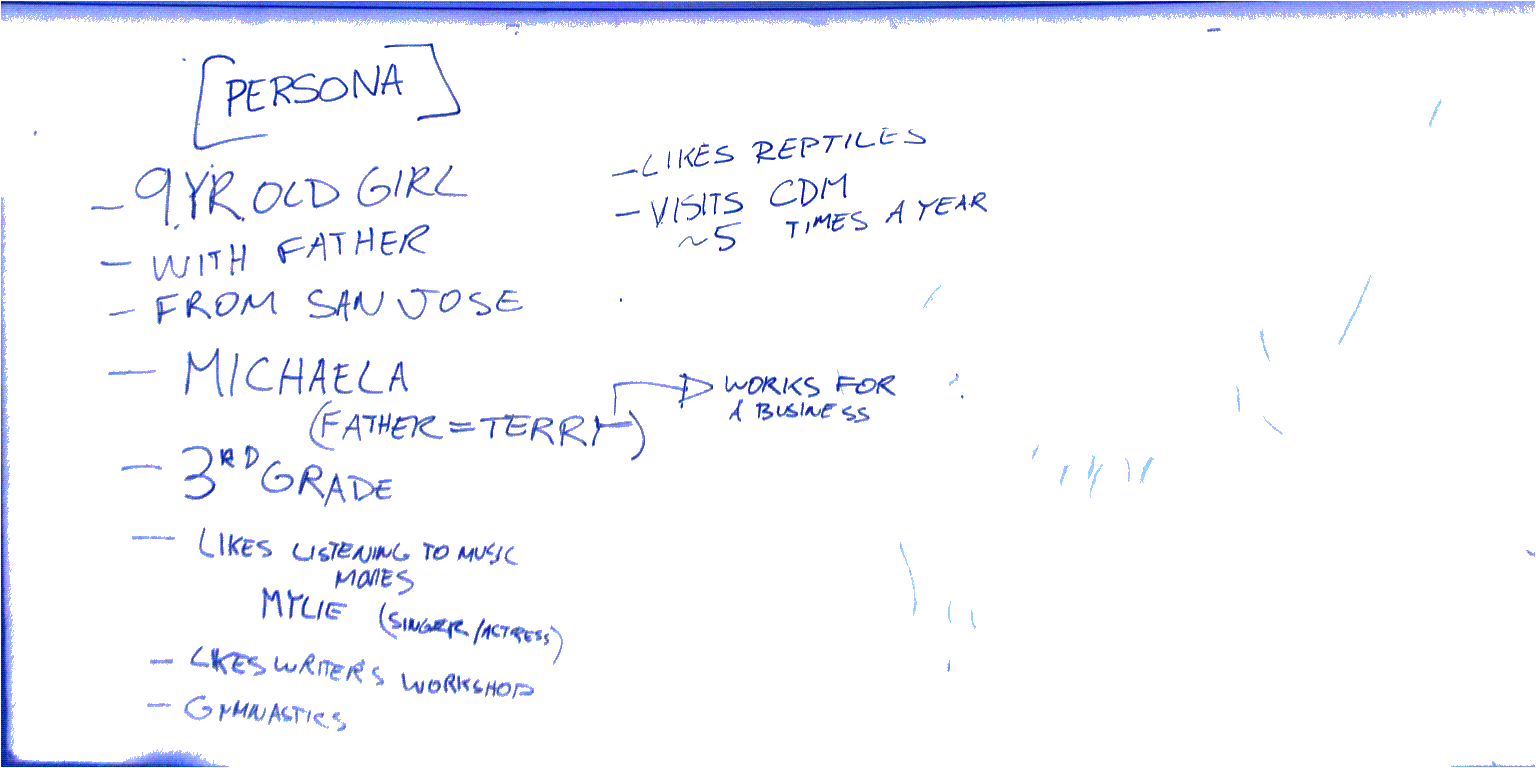 [PERSONA]
- 9 YR OLD GIRL
- WITH FATHER
- FROM SAN JOSE
- MICHAELA
(FATHER = TERRY)
WORKS FOR
A BUSINESS
- 3RD GRADE
- LIKES LISTENING TO MUSIC
MOVIES
MYLIE (SINGER/ACTRESS)
- LIKES WRITERS WORKSHOP
- GYMNASTICS
- LIKES REPTILES
- VISITS CDM
~5 TIMES A YEAR